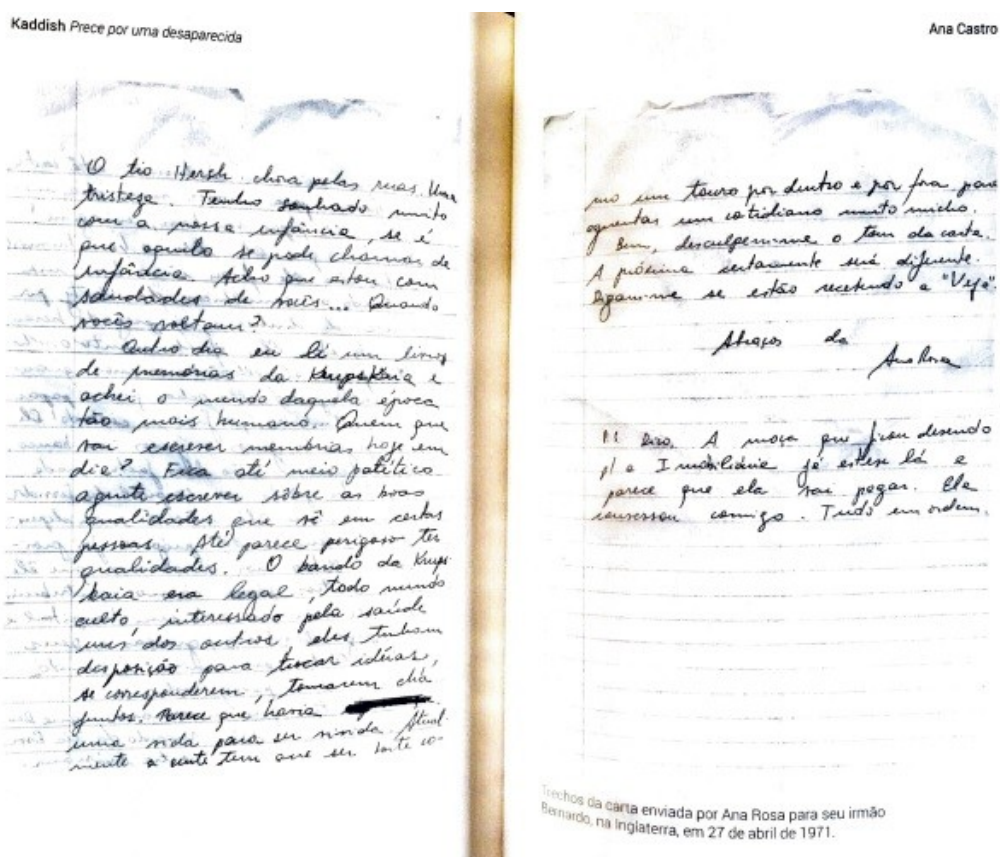 Kaddish Prece por uma desaparecida
O tio Hersh chora pelas ruas. Uma
tristeza. Tenho sonhado muito
com a nossa infância, se é
que aquilo se pode chamar de
infância. Acho que estou com
saudades de vocês... Quando
vocês voltam?
Outro dia eu li um livro
de memórias da Krupskaia e
achei o mundo daquela época
tão mais humano. Quem que
vai escrever memórias hoje em
dia? Fica até meio patético
a gente escrever sôbre as boas
qualidades que vê em certas
pessoas. Até parece perigoso ter
qualidades. O bando da Krups
kaia era legal, todo mundo
culto, interessado pela saúde
uns dos outros, eles tinham
disposição para trocar idéias,
se corresponderem, tomarem chá
juntos. Parece que havia
uma vida para ser vivida. Atual-
mente a gente tem que ser forte co-
Ana Castro
mo um touro por dentro e por fora para
aguentar um cotidiano muito micho.
Bem, desculpem-me o tom da carta.
A próxima certamente será diferente.
Digam-me se estão recebendo a "Veja"
Abraços da
Ana Rosa
A moça que ficou devendo
p/ a Imobiliária já esteve lá e
parece que ela vai pagar. Ela
conversou comigo. Tudo em ordem.
Trechos da carta enviada por Ana Rosa para seu irmão
Bernardo, na Inglaterra, em 27 de abril de 1971.